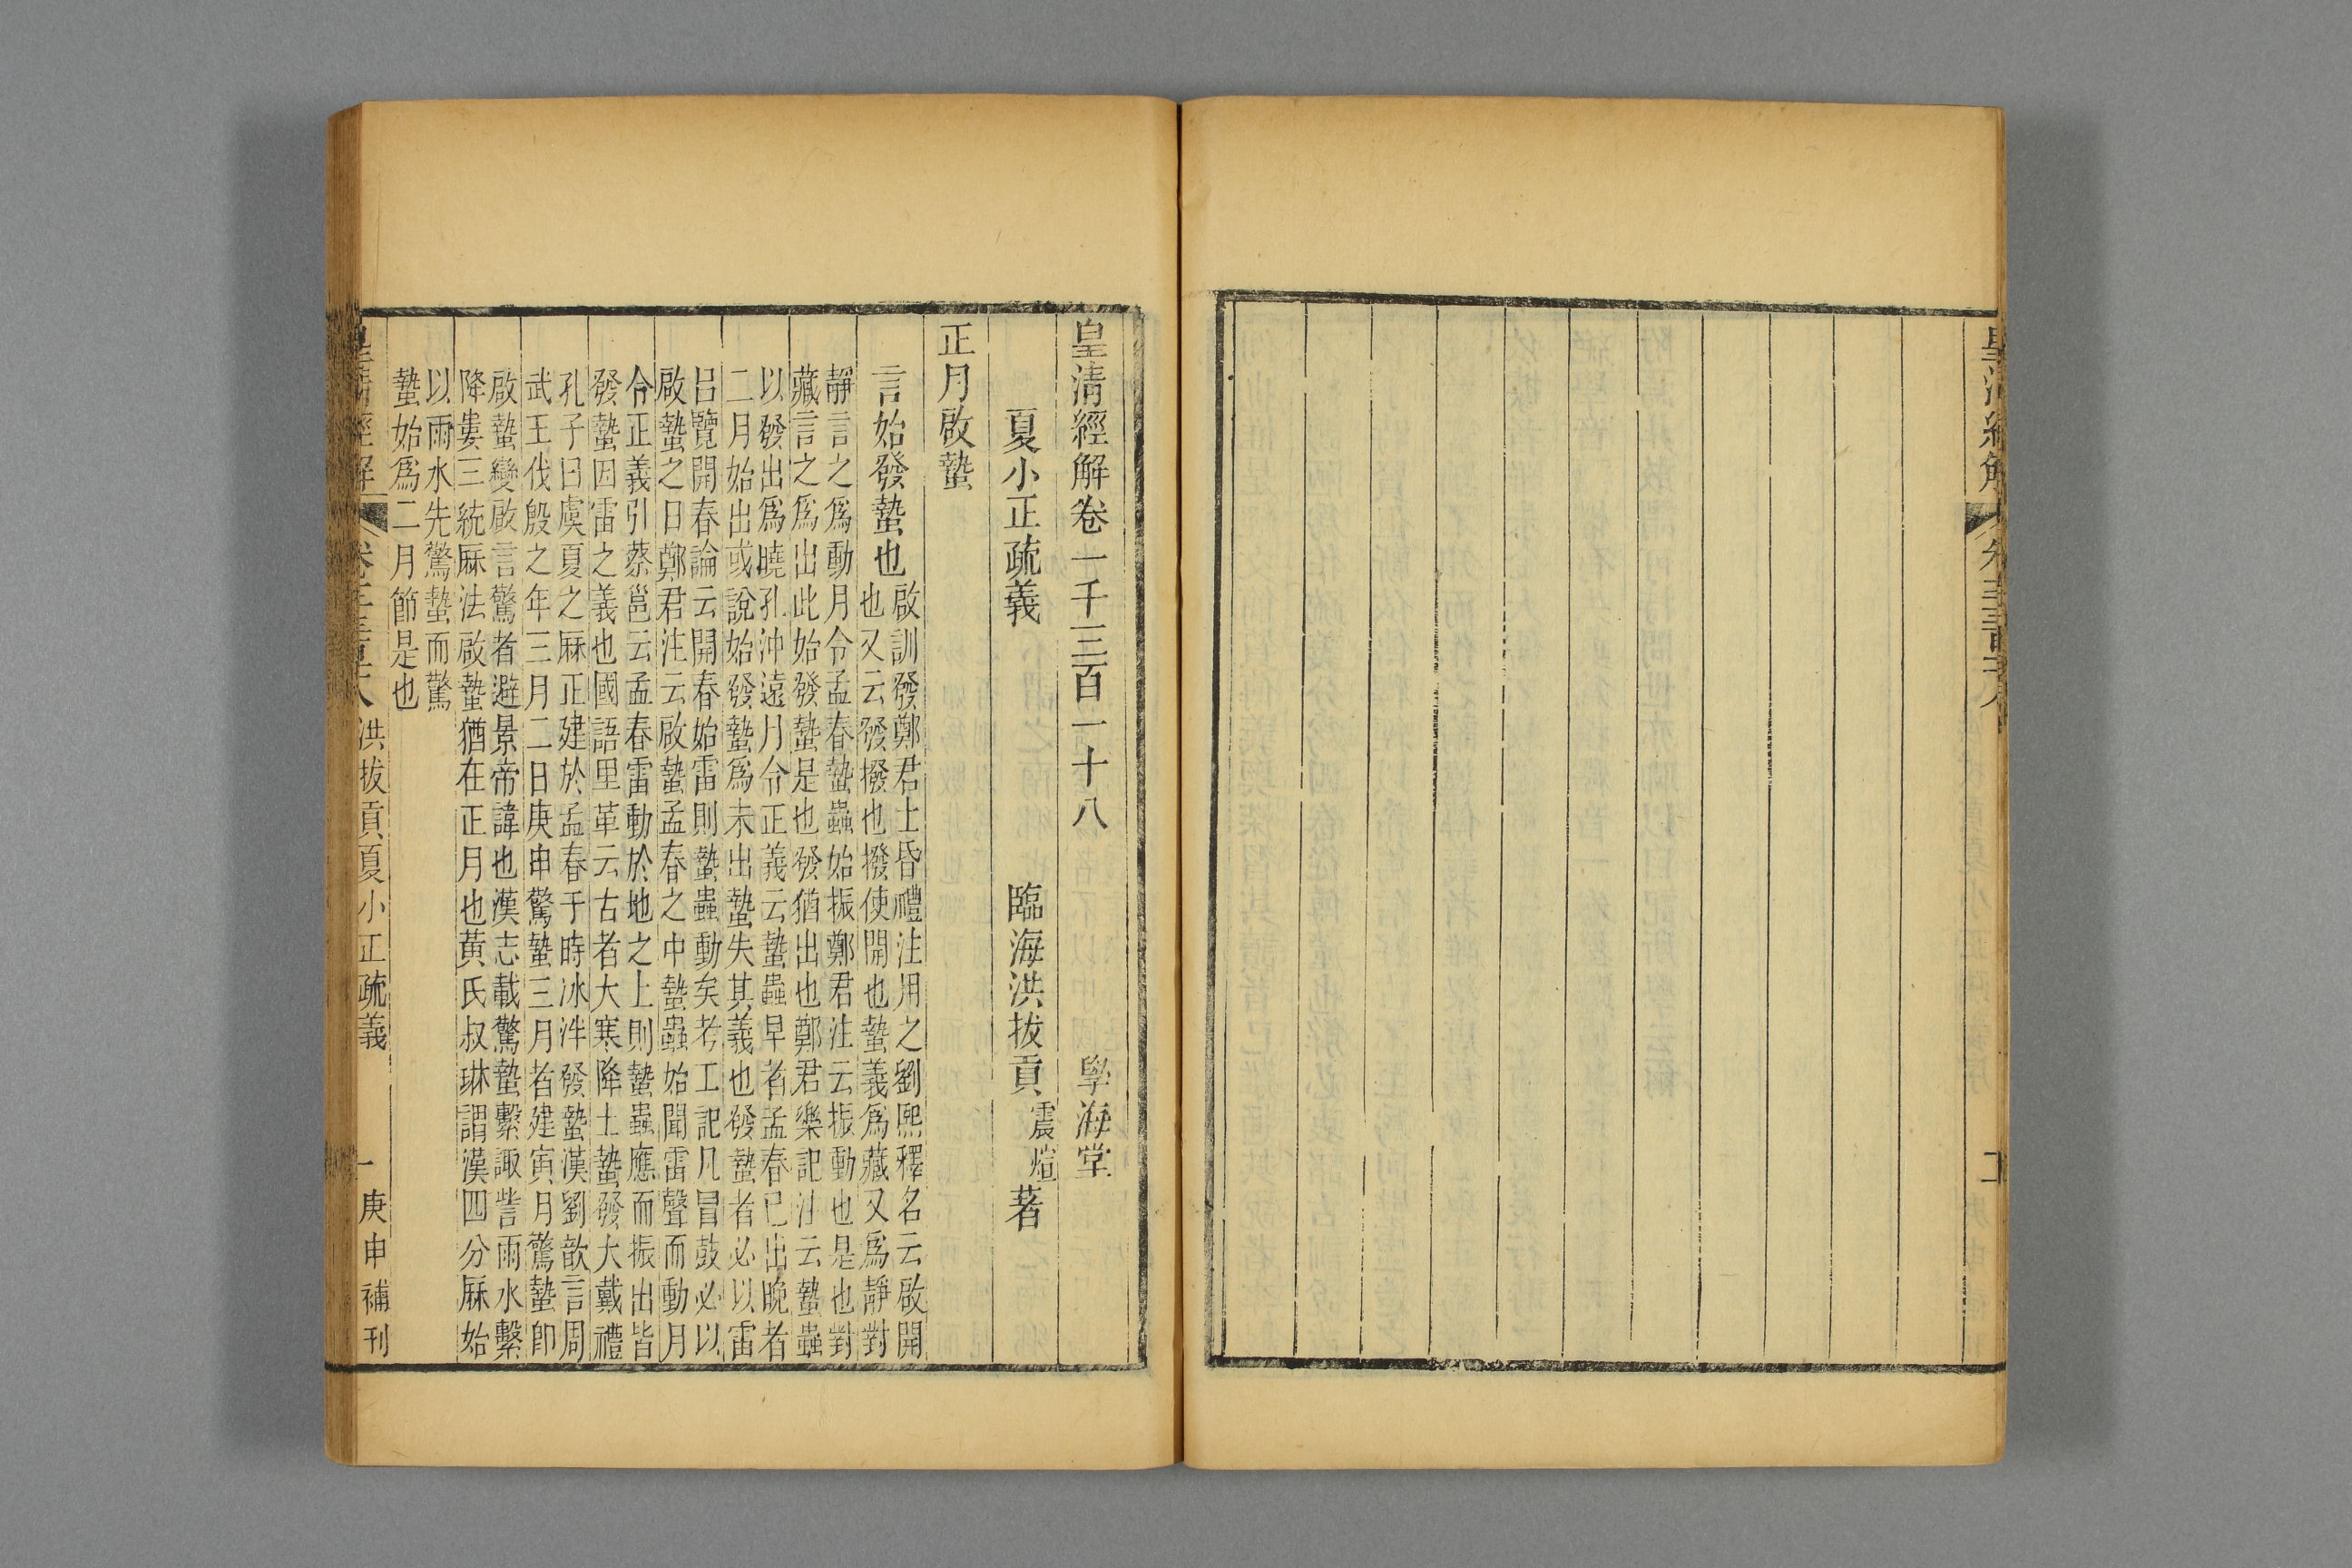 皇清經解卷一千三百一十八 學海堂
夏小正疏義 臨海洪拔貢震煊著
正月啟蟄
言始發蟄也啟訓發鄭君士昏禮注用之劉熙釋名云啟開
也又云發撥也撥使開也蟄義爲藏又爲靜對
靜言之爲動月令孟春蟄蟲始振鄭君注云振動也是也對
藏言之爲出此始發蟄是也發猶出也鄭君樂記注云蟄蟲
以發出爲曉孔沖遠月令正義云蟄蟲早者孟春已出晚者
二月始出或說始發蟄爲未出蟄失其義也發蟄者必以雷
呂覽開春論云開春始雷則蟄蟲動矣考工記凡冒鼓必以
啟蟄之日鄭君注云啟蟄孟春之中蟄蟲始聞雷聲而動月
令正義引蔡邕云孟春雷動於地之上則蟄蟲應而振出皆
發蟄因雷之義也國語里革云古者大寒降土蟄發大戴禮
孔子曰虞夏之厤正建於孟春于時冰泮發蟄漢劉歆言周
武王伐殷之年三月二日庚申驚蟄三月者建寅月驚蟄卽
啟蟄變啟言驚者避景帝諱也漢志載驚蟄繫諏訾雨水繫
降婁三統厤法啟蟄猶在正月也黃氏叔琳謂漢四分厤始
以雨水先驚蟄而驚
蟄始爲二月節是也
皇清經解 洪拔貢夏小正疏義 一 庚申補刊